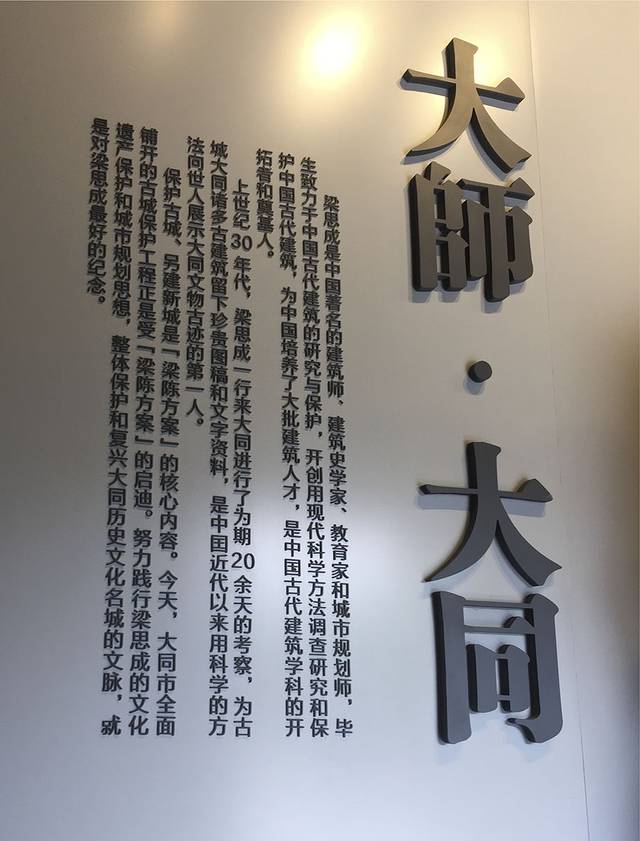 大師·大同
梁思成是中国著名的建筑师、建筑史学家、教育家和城市规划师，毕
生致力于中国古代建筑的研究与保护，开创用现代科学方法调查研究和保
护中国古代建筑，为中国培养了大批建筑人才，是中国古代建筑学科的开
拓者和奠基人。
上世纪30年代，梁思成一行来大同进行了为期20余天的考察，为古
城大同诸多古建筑留下珍贵图稿和文字资料，是中国近代以来用科学的方
法向世人展示大同文物古迹的第一人。
保护古城、另建新城是「梁陈方案」的核心内容。今天，大同市全面
铺开的古城保护工程正是受「梁陈方案」的启迪。努力践行梁思成的文化
遗产保护和城市规划思想，整体保护和复兴大同历史文化名城的文脉，就
是对梁思成最好的纪念。